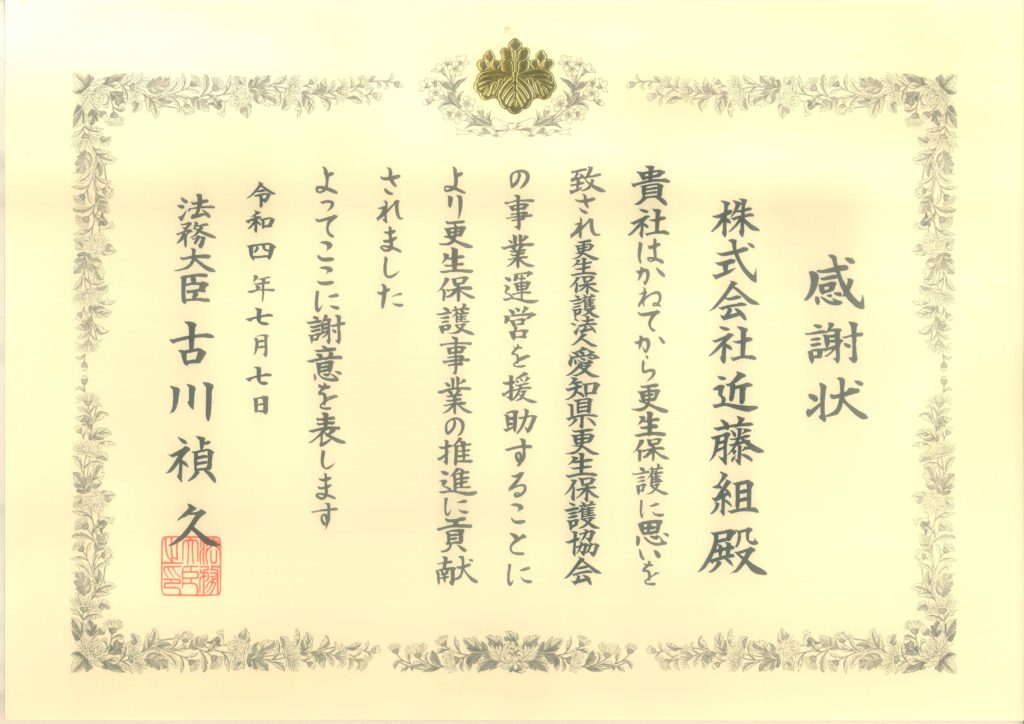 感謝状
株式会社近藤組殿
貴社はかねてから更生保護に思いを
致され更生保護法人愛知県更生保護協会
の事業運営を援助することに
より更生保護事業の推進に貢献
されました
よってここに謝意を表します
令和四年七月七日
法務大臣 古川禎久
法務大臣之印